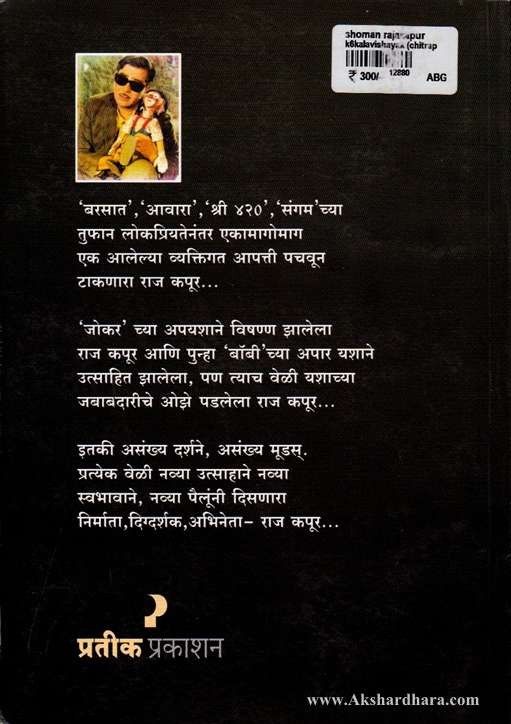 shoman rajkapur
k6kalavishayak (chitrap
₹ 300/- 12880 ABG
‘बरसात’,‘आवारा’,‘श्री ४२०’,‘संगम’च्या
तुफान लोकप्रियतेनंतर एकामागोमाग
एक आलेल्या व्यक्तिगत आपत्ती पचवून
टाकणारा राज कपूर...
‘जोकर’ च्या अपयशाने विषण्ण झालेला
राज कपूर आणि पुन्हा ‘बॉबी’च्या अपार यशाने
उत्साहित झालेला, पण त्याच वेळी यशाच्या
जबाबदारीचे ओझे पडलेला राज कपूर...
इतकी असंख्य दर्शने, असंख्य मूडस्.
प्रत्येक वेळी नव्या उत्साहाने नव्या
स्वभावाने, नव्या पैलूंनी दिसणारा
निर्माता,दिग्दर्शक,अभिनेता– राज कपूर...
प्रतीक प्रकाशन
www.Akshardhara.com